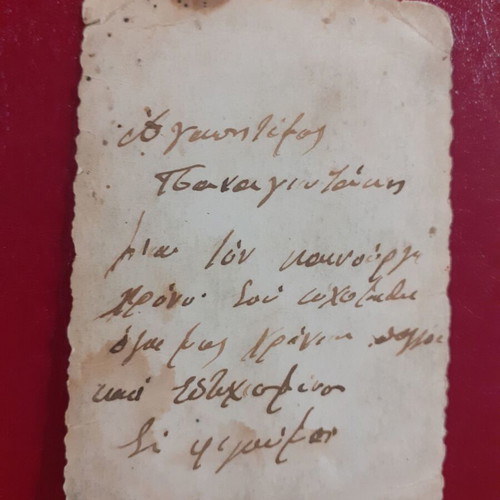 Αγαπητέ μας
Παναγιωτάκη
μια τον καινούργιο
χρόνο σου ευχόμεθα
όλοι μας χρόνια πολλά
και ευτυχισμένα
Σε φιλούμεν